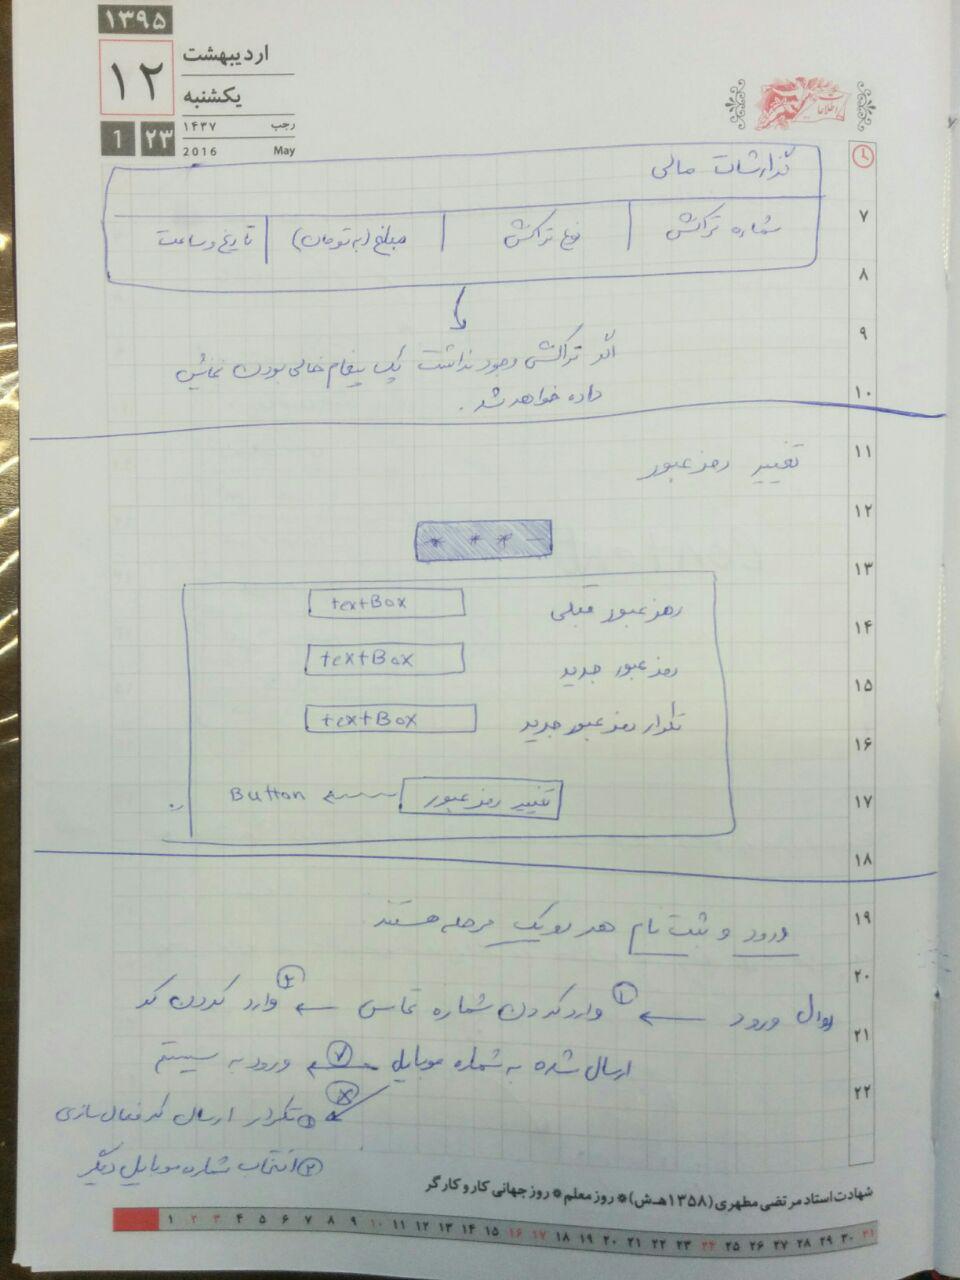 ۱۳۹۵
۱۲
اردیبهشت
یکشنبه
۱۴۳۷ رجب
2016 May
1 ۲۳
اطلاعات
گزارشات مالی
شماره تراکنش | نوع تراکنش | مبلغ (به تومان) | تاریخ و ساعت
اگر تراکنشی وجود نداشت یک پیغام خالی بودن نمایش
داده خواهد شد.
تغییر رمز عبور
* * * –
رمز عبور قبلی textBox
رمز عبور جدید textBox
تکرار رمز عبور جدید textBox
تغییر رمز عبور ← Button
ورود و ثبت نام هر دو یک مرحله هستند
روال ورود ← ① وارد کردن شماره تماس ← ② وارد کردن کد
ارسال شده به شماره موبایل ← ✓ ورود به سیستم
✗ ① تکرار ارسال کد فعال سازی
② انتخاب شماره موبایل دیگر
۷
۸
۹
۱۰
۱۱
۱۲
۱۳
۱۴
۱۵
۱۶
۱۷
۱۸
۱۹
۲۰
۲۱
۲۲
شهادت استاد مرتضی مطهری (۱۳۵۸ هـ.ش) * روز معلم * روز جهانی کار و کارگر
۱ ۲ ۳ ۴ ۵ ۶ ۷ ۸ ۹ ۱۰ ۱۱ ۱۲ ۱۳ ۱۴ ۱۵ ۱۶ ۱۷ ۱۸ ۱۹ ۲۰ ۲۱ ۲۲ ۲۳ ۲۴ ۲۵ ۲۶ ۲۷ ۲۸ ۲۹ ۳۰ ۳۱